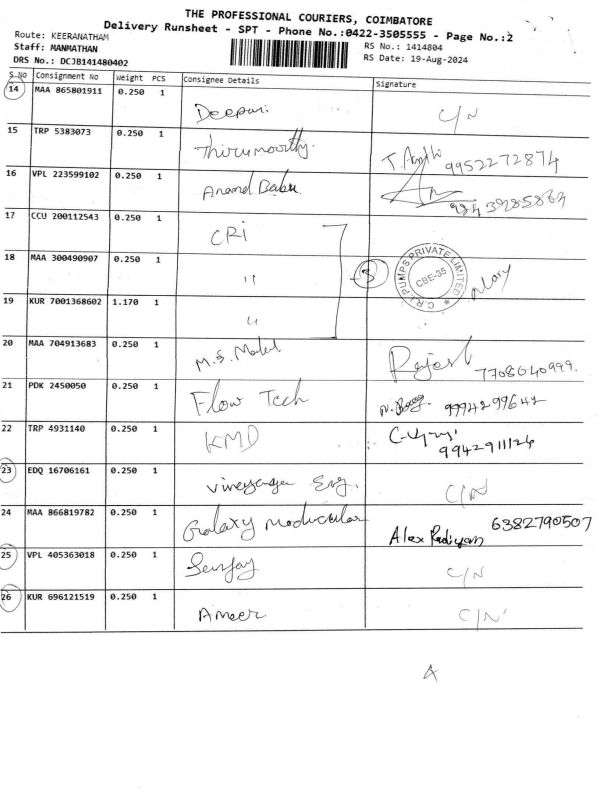 THE PROFESSIONAL COURIERS, COIMBATORE
Delivery Runsheet - SPT - Phone No.:0422-3505555 - Page No.:2
Route: KEERANATHAM
Staff: MANMATHAN
RS No.: 1414804
DRS No.: DCJB141480402
RS Date: 19-Aug-2024
S.No Consignment No Weight PCS Consignee Details Signature
14 MAA 865801911 0.250 1 C/N
15 TRP 5383073 0.250 1 Thirumoorthy. 9952272874
16 VPL 223599102 0.250 1 Anand Babu
17 CCU 200112543 0.250 1 CRI
18 MAA 300490907 0.250 1 " 3 C.R.I PUMPS PRIVATE LIMITED CBE-35
19 KUR 7001368602 1.170 1 "
20 MAA 704913683 0.250 1 M.S. Rajesh 7708640999.
21 PDK 2450050 0.250 1 Flow Tech 9994299642
22 TRP 4931140 0.250 1 KMD 9942911124
23 EDQ 16706161 0.250 1 Eng. C/N
24 MAA 866819782 0.250 1 Galaxy 6382790507
Alex Pandiyan
25 VPL 405363018 0.250 1 Sanjay C/N
26 KUR 696121519 0.250 1 Ameer C/N